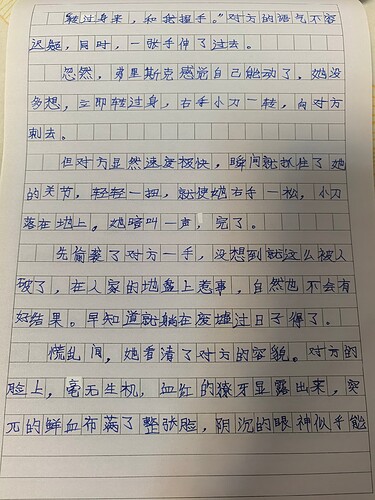 转过身来，和我握手。”对方的语气不容
迟疑，同时，一张手伸了过去。
忽然，弗里斯克感觉自己能动了。她没
多想，立即转过身，右手小刀一转，向对方
刺去。
但对方显然速度极快，瞬间就抓住了她
的关节，轻轻一扭，就使她右手一松，小刀
落在地上，她暗叫一声，完了。
先偷袭了对方一手，没想到就这么被人
破了，在人家的地盘上惹事，自然也不会有
好结果。早知道就躺在废墟过日子得了。
慌乱间，她看清了对方的容貌。对方的
脸上，毫无生机，血红的獠牙显露出来，突
兀的鲜血布满了整张脸，阴沉的眼神似乎能